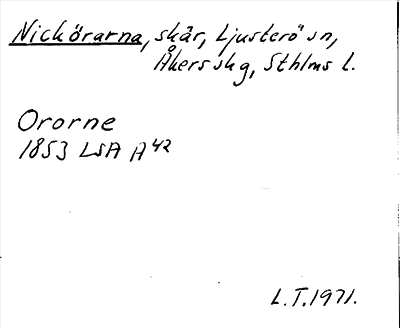 Nickörarna, skär, Ljusterö sn,
Åkers skg, Sthlms l.
Ororne
1853 LSA A42
L.T.1971.